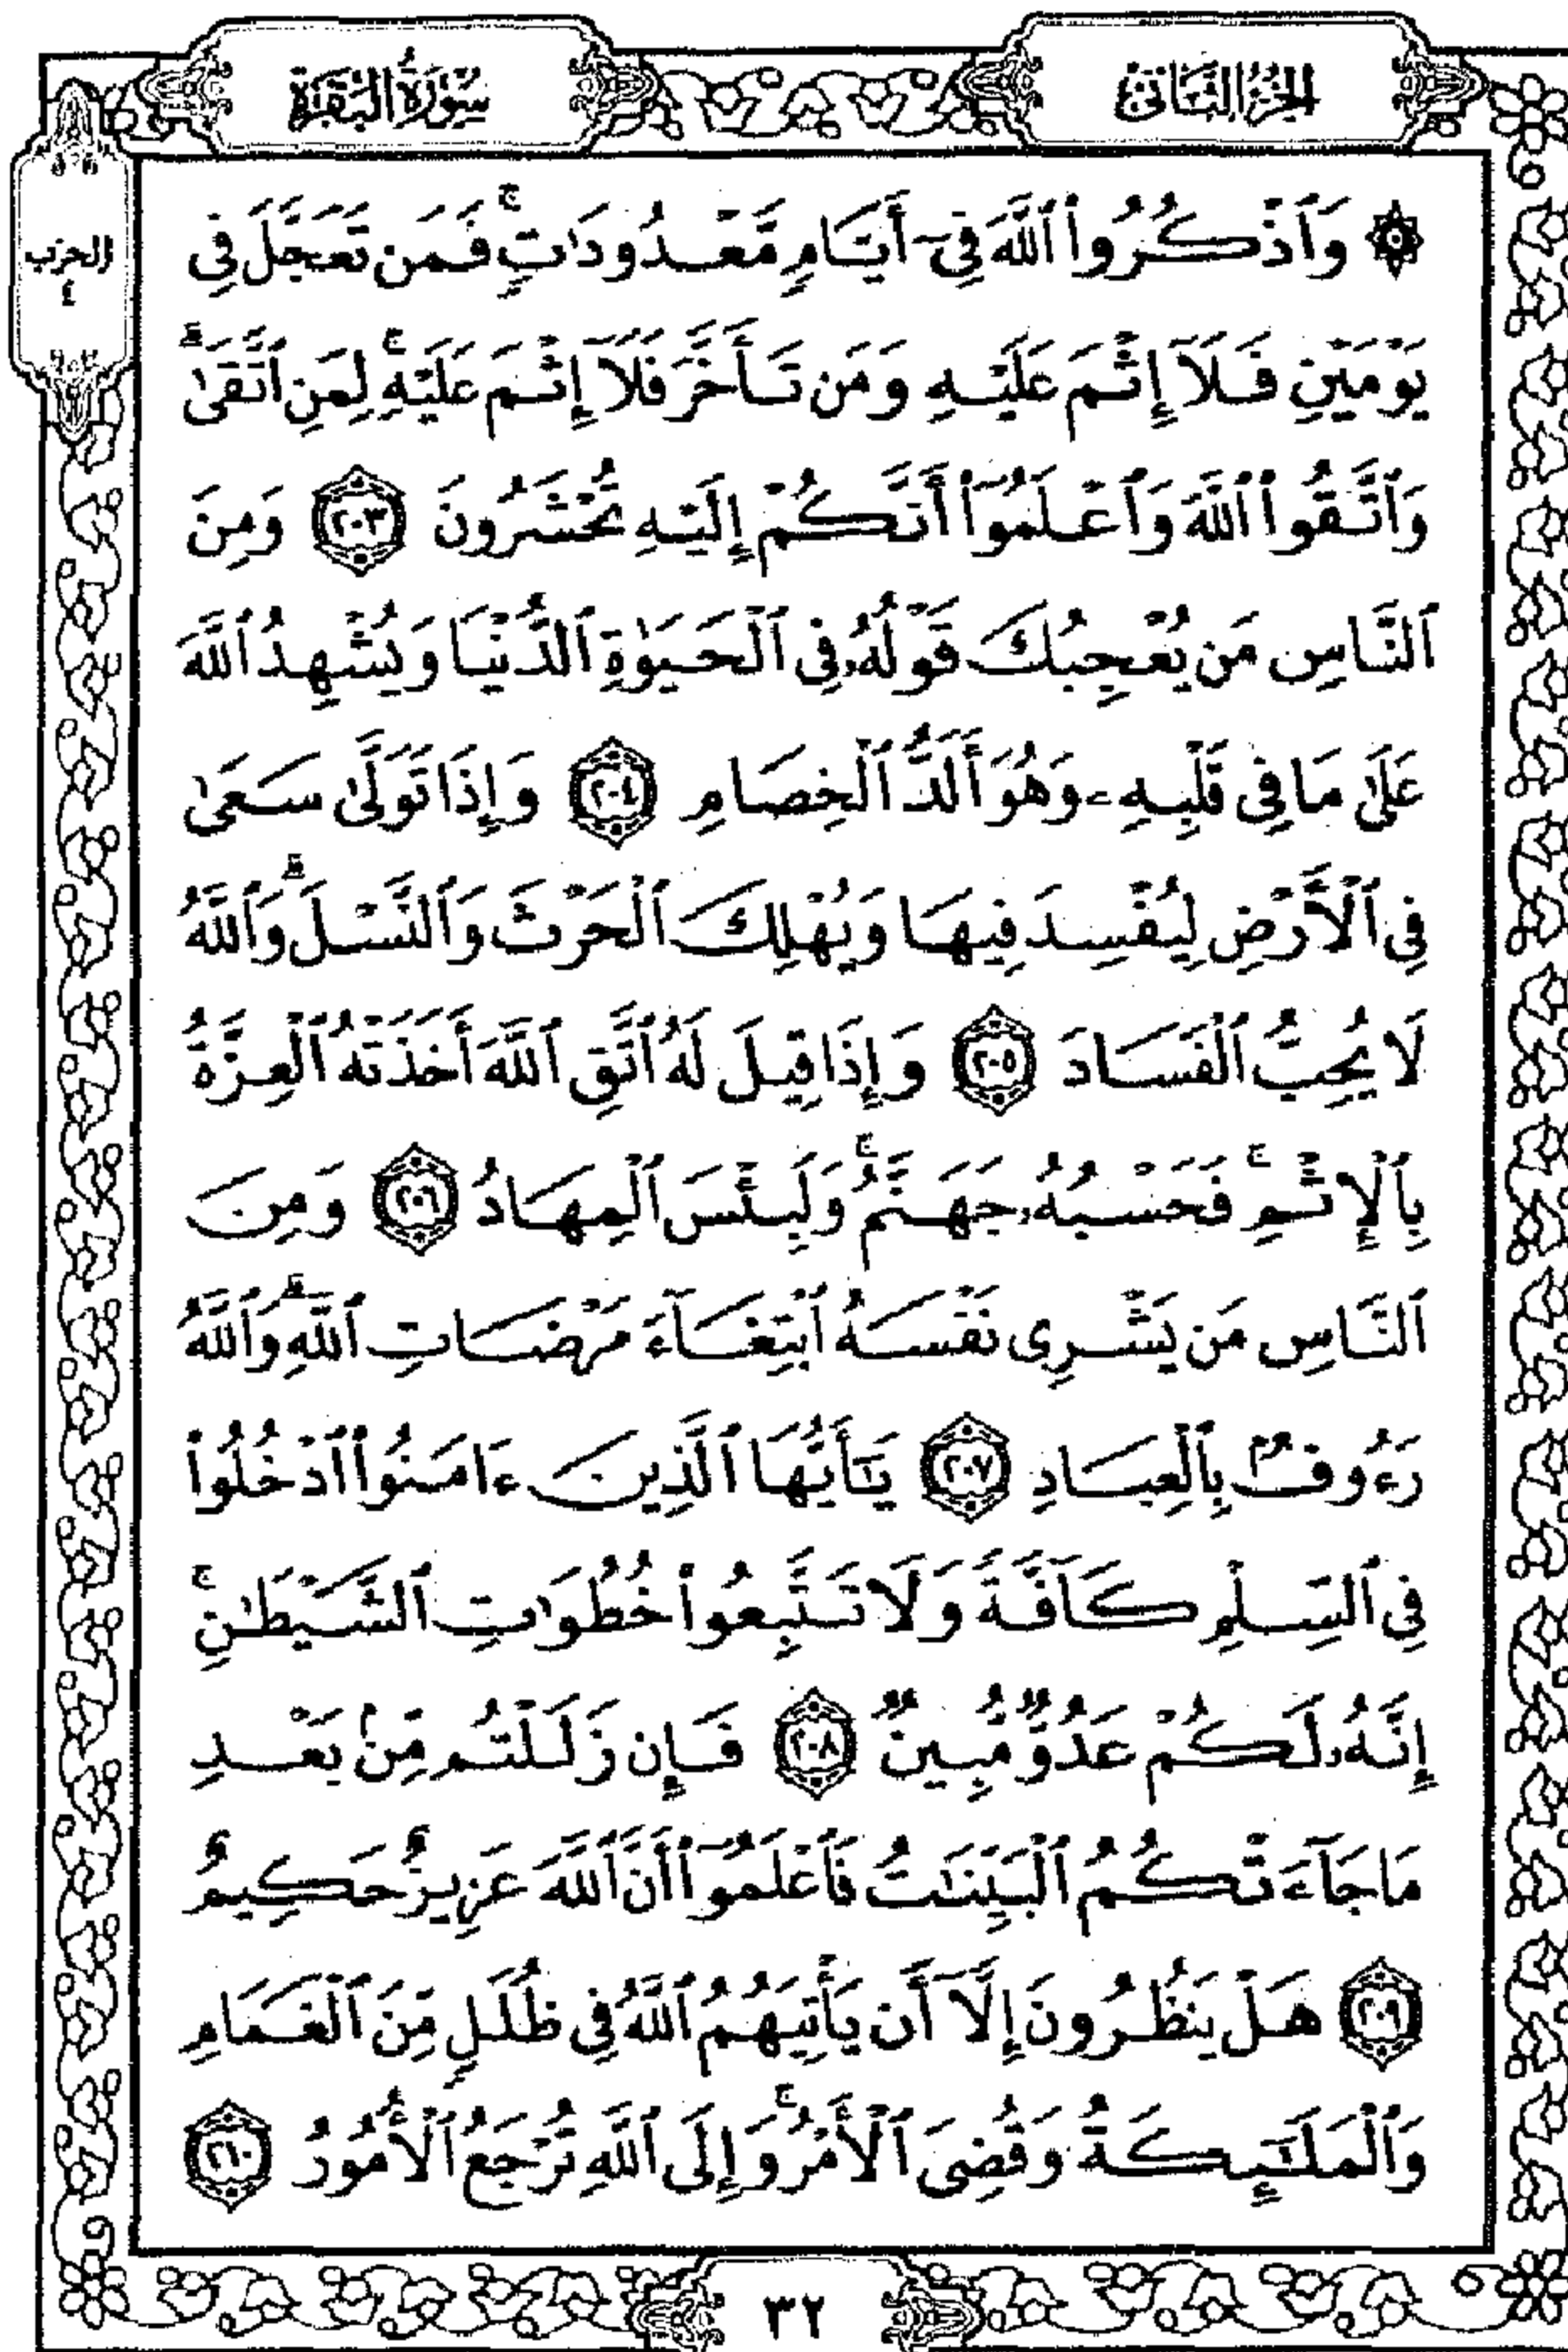 الجزء الثاني
سورة البقرة
الحزب
٤
۞ وَٱذْكُرُوا۟ ٱللَّهَ فِىٓ أَيَّامٍ مَّعْدُودَٰتٍ ۚ فَمَن تَعَجَّلَ فِى
يَوْمَيْنِ فَلَآ إِثْمَ عَلَيْهِ وَمَن تَأَخَّرَ فَلَآ إِثْمَ عَلَيْهِ ۚ لِمَنِ ٱتَّقَىٰ ۗ
وَٱتَّقُوا۟ ٱللَّهَ وَٱعْلَمُوٓا۟ أَنَّكُمْ إِلَيْهِ تُحْشَرُونَ ٢٠٣ وَمِنَ
ٱلنَّاسِ مَن يُعْجِبُكَ قَوْلُهُۥ فِى ٱلْحَيَوٰةِ ٱلدُّنْيَا وَيُشْهِدُ ٱللَّهَ
عَلَىٰ مَا فِى قَلْبِهِۦ وَهُوَ أَلَدُّ ٱلْخِصَامِ ٢٠٤ وَإِذَا تَوَلَّىٰ سَعَىٰ
فِى ٱلْأَرْضِ لِيُفْسِدَ فِيهَا وَيُهْلِكَ ٱلْحَرْثَ وَٱلنَّسْلَ ۗ وَٱللَّهُ
لَا يُحِبُّ ٱلْفَسَادَ ٢٠٥ وَإِذَا قِيلَ لَهُ ٱتَّقِ ٱللَّهَ أَخَذَتْهُ ٱلْعِزَّةُ
بِٱلْإِثْمِ ۚ فَحَسْبُهُۥ جَهَنَّمُ ۚ وَلَبِئْسَ ٱلْمِهَادُ ٢٠٦ وَمِنَ
ٱلنَّاسِ مَن يَشْرِى نَفْسَهُ ٱبْتِغَآءَ مَرْضَاتِ ٱللَّهِ ۗ وَٱللَّهُ
رَءُوفٌۢ بِٱلْعِبَادِ ٢٠٧ يَـٰٓأَيُّهَا ٱلَّذِينَ ءَامَنُوا۟ ٱدْخُلُوا۟
فِى ٱلسِّلْمِ كَآفَّةً وَلَا تَتَّبِعُوا۟ خُطُوَٰتِ ٱلشَّيْطَـٰنِ ۚ
إِنَّهُۥ لَكُمْ عَدُوٌّ مُّبِينٌ ٢٠٨ فَإِن زَلَلْتُم مِّنۢ بَعْدِ
مَا جَآءَتْكُمُ ٱلْبَيِّنَـٰتُ فَٱعْلَمُوٓا۟ أَنَّ ٱللَّهَ عَزِيزٌ حَكِيمٌ
٢٠٩ هَلْ يَنظُرُونَ إِلَّآ أَن يَأْتِيَهُمُ ٱللَّهُ فِى ظُلَلٍ مِّنَ ٱلْغَمَامِ
وَٱلْمَلَـٰٓئِكَةُ وَقُضِىَ ٱلْأَمْرُ ۚ وَإِلَى ٱللَّهِ تُرْجَعُ ٱلْأُمُورُ ٢١٠
٣٢